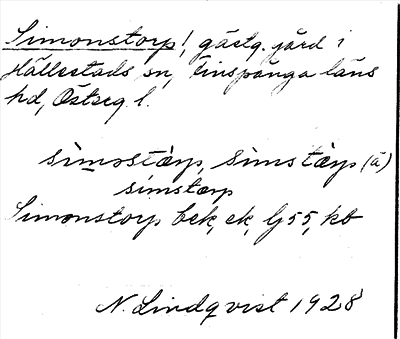 Simonstorp!, gästg. gård i
Hällestads sn, Finspånga läns
hd, Östeg. l.
sìmostàrp, sìmstàrp (ä)
sìmstærp
Simonstorp bek, ek, G55, kb
N. Lindqvist 1928